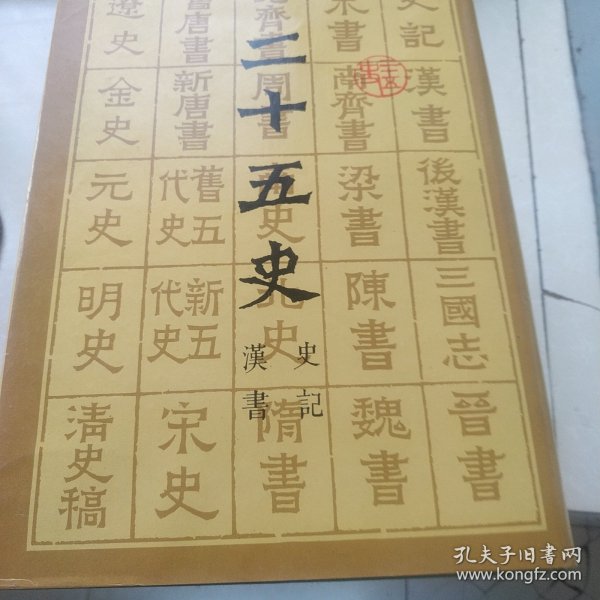 二十五史
史記
漢書
史記
漢書
後漢書
三國志
晉書
書
南齊書
梁書
陳書
魏書
齊書
周書
史
北史
隋書
唐書
新唐書
舊五代史
新五代史
宋史
遼史
金史
元史
明史
清史稿
孔夫子旧书网
www.kongfz.com